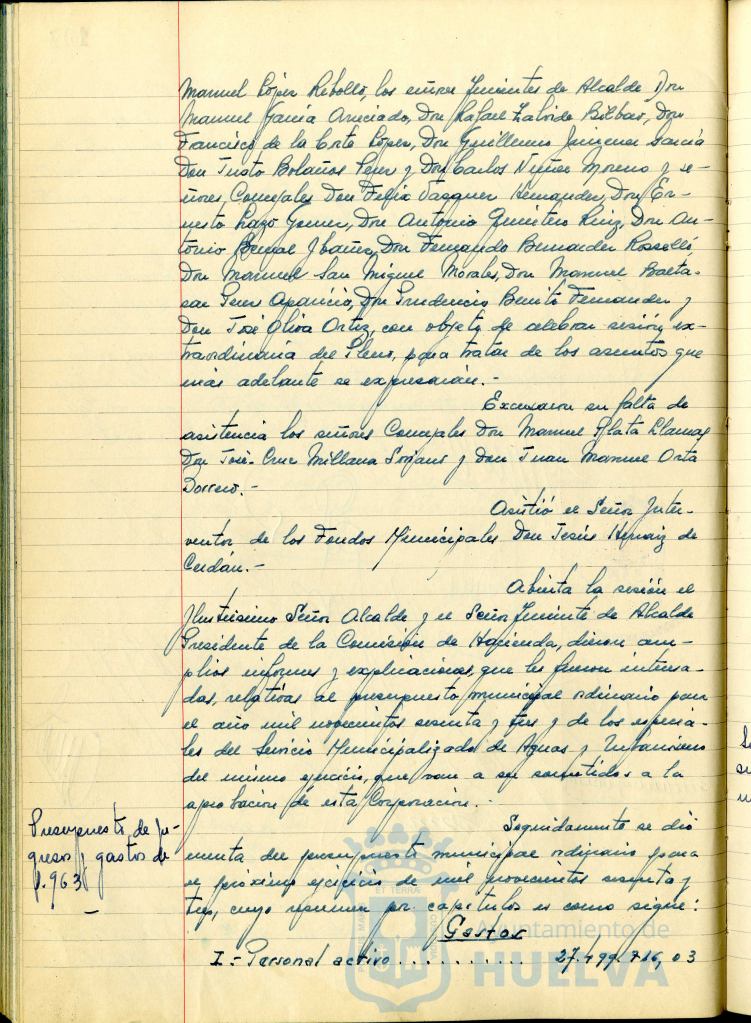 Manuel López Rebollo, los señores Tenientes de Alcalde Don
Manuel García Aneciado, Don Rafael Zalvide Bilbao, Don
Francisco de la Corte López, Don Guillermo Jimenez García
Don Justo Bolaños Perez y Don Carlos Nuñez Moreno y se-
ñores Concejales Don Felix Vazquez Hernandez, Don Er-
nesto Lazo Gomez, Don Antonio Quintero Ruiz, Don An-
tonio Bernal Ibañez, Don Fernando Bernardez Rosselló,
Don Manuel San Miguel Morales, Don Manuel Balta-
sar Aparicio, Don Prudencio Benito Fernandez y
Don José Oliva Ortiz, con objeto de celebrar sesión ex-
traordinaria del Pleno, para tratar de los asuntos que
más adelante se expresarán.-
Excusaron su falta de
asistencia los señores Concejales Don Manuel Plata Llamas
Don José Cruz Millana y Don Juan Manuel Orta
Borrero.-
Asistió el Señor Inter-
ventor de los Fondos Municipales Don Jesús Hernaiz de
Cerdán.-
Abierta la sesión el
Ilustrisimo Señor Alcalde y el Señor Teniente de Alcalde
Presidente de la Comisión de Hacienda, dieron am-
plios informes y explicaciones, que les fueron interesa-
das, relativas al presupuesto municipal ordinario para
el año mil novecientos sesenta y tres y de los especia-
les del Servicio Municipalizado de Aguas y Urbanismo
del mismo ejercicio, que van a ser sometidos a la
aprobación de esta Corporación.-
Presupuesto de In-
gresos y gastos de
1.963
Seguidamente se dió
cuenta del presupuesto municipal ordinario para
el próximo ejercicio de mil novecientos sesenta y
tres, cuyo resumen por capitulos es como sigue:
Gastos
I.- Personal activo........... 27.499.716,03
Ayuntamiento de
HUELVA